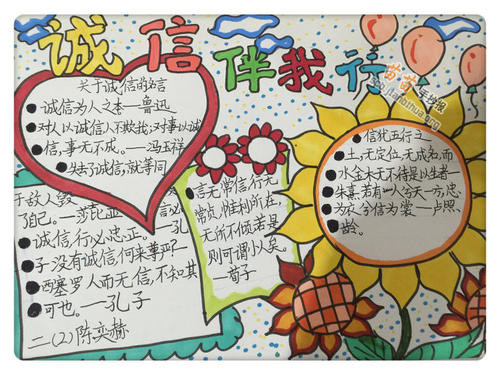 诚信伴我行
关于诚信的名言
诚信为人之本—鲁迅
对人以诚信人不欺我;对事以诚
信,事无不成。—冯玉祥
失去了诚信,就等同
于敌人毁
了自己。—莎
诚信,行必忠正。—孔
子没有诚信,何来尊严?
西塞罗人而无信,不知其
可也。—孔子
二(2)陈奕赫
言无常信,行无
常贞,惟利所在,
无所不倾,若是
则可谓小人矣。
荀子
信犹五行之
土,无定位,无成名,而
水金木无不待是以生者—
朱熹
为衣,令信为裳—卢照
龄。